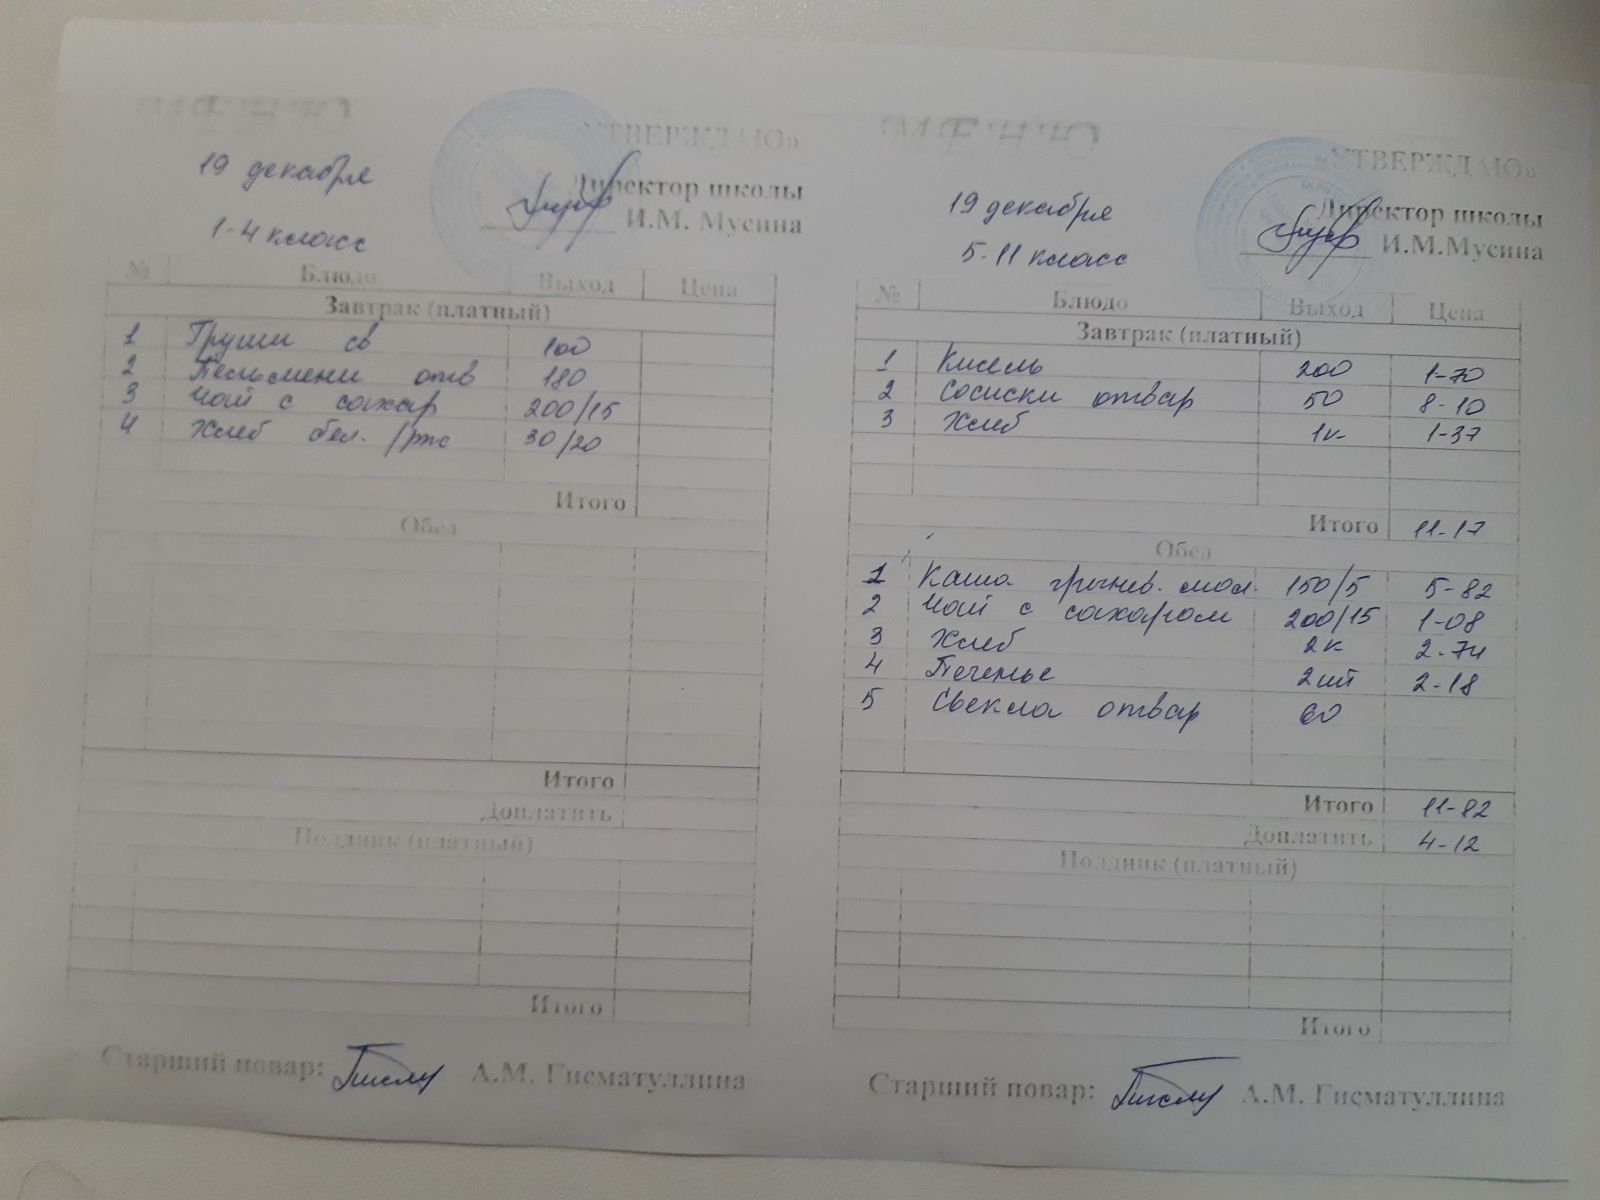 МЕНЮ
«УТВЕРЖДАЮ»
19 декабря
Директор школы
И.М. Мусина
1-4 класс
№ Блюдо Выход Цена
Завтрак (платный)
1 Груши св 100
2 Пельмени отв 180
3 Чай с сахар 200/15
4 Хлеб бел. /рж 30/20
Итого
Обед
Итого
Доплатить
Полдник (платный)
Итого
Старший повар: А.М. Гисматуллина
МЕНЮ
«УТВЕРЖДАЮ»
19 декабря
Директор школы
И.М.Мусина
5-11 класс
№ Блюдо Выход Цена
Завтрак (платный)
1 Кисель 200 1-70
2 Сосиски отвар 50 8-10
3 Хлеб 1к 1-37
Итого 11-17
Обед
1 Каша гречнев. мол. 150/5 5-82
2 Чай с сахаром 200/15 1-08
3 Хлеб 2к 2-74
4 Печенье 2шт 2-18
5 Свекла отвар 60
Итого 11-82
Доплатить 4-12
Полдник (платный)
Итого
Старший повар: А.М. Гисматуллина